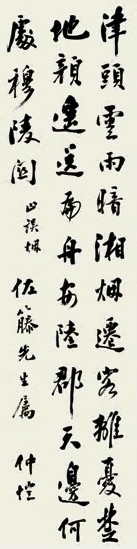 津頭雲雨暗湘烟遷客離憂楚
地顏遙送扁舟安陸郡天邊何
處穆陵關 山誤烟 佐藤先生屬 仲愷